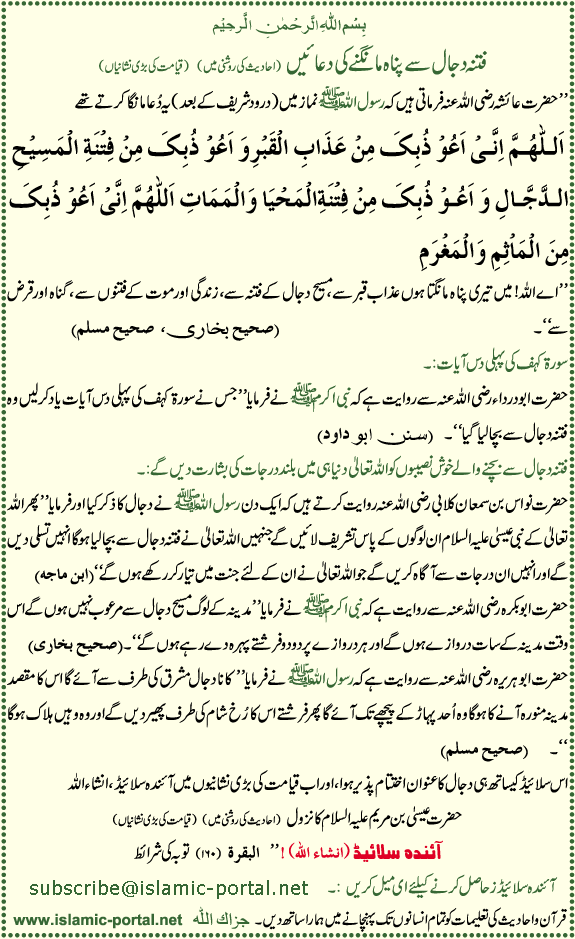 بِسْمِ اللهِ الرَّحْمٰنِ الرَّحِیْمِ
فتنہ دجال سے پناہ مانگنے کی دعائیں (احادیث کی روشنی میں) (قیامت کی بڑی نشانیاں)
’’حضرت عائشہ رضی اللہ عنہ فرماتی ہیں کہ رسول اللہ ﷺ نماز میں (درود شریف کے بعد) یہ دُعا مانگا کرتے تھے
اَللّٰهُمَّ اِنَّیْ اَعُوْ ذُبِکَ مِنْ عَذَابِ الْقَبْرِ وَ اَعُوْ ذُبِکَ مِنْ فِتْنَةِ الْمَسِیْحِ
الدَّجَّالِ وَ اَعُوْ ذُبِکَ مِنْ فِتْنَةِ الْمَحْیَا وَالْمَمَاتِ اَللّٰهُمَّ اِنَّیْ اَعُوْ ذُبِکَ
مِنَ الْمَاْثِمِ وَالْمَغْرَمِ
’’اے اللہ! میں تیری پناہ مانگتا ہوں عذاب قبر سے، مسیح دجال کے فتنہ سے، زندگی اور موت کے فتنوں سے، گناہ اور قرض
سے‘‘۔ (صحیح بخاری، صحیح مسلم)
سورۃ کہف کی پہلی دس آیات:۔
حضرت ابودرداء رضی اللہ عنہ سے روایت ہے کہ نبی اکرم ﷺ نے فرمایا ’’جس نے سورۃ کہف کی پہلی دس آیات یاد کر لیں وہ
فتنہ دجال سے بچا لیا گیا‘‘۔ (سنن ابو داود)
فتنہ دجال سے بچنے والے خوش نصیبوں کو اللہ تعالیٰ دنیا ہی میں بلند درجات کی بشارت دیں گے:۔
حضرت نواس بن سمعان کلابی رضی اللہ عنہ روایت کرتے ہیں کہ ایک دن رسول اللہ ﷺ نے دجال کا ذکر کیا اور فرمایا ’’پھر اللہ
تعالیٰ کے نبی عیسیٰ علیہ السلام ان لوگوں کے پاس تشریف لائیں گے جنہیں اللہ تعالیٰ نے فتنہ دجال سے بچا لیا ہوگا انہیں تسلی دیں
گے اور انہیں ان درجات سے آگاہ کریں گے جو اللہ تعالیٰ نے ان کے لئے جنت میں تیار کر رکھے ہوں گے‘‘ (ابن ماجہ)
حضرت ابوبکرہ رضی اللہ عنہ سے روایت ہے کہ نبی اکرم ﷺ نے فرمایا ’’مدینہ کے لوگ مسیح دجال سے مرعوب نہیں ہوں گے اس
وقت مدینہ کے سات دروازے ہوں گے اور ہر دروازے پر دو دو فرشتے پہرہ دے رہے ہوں گے‘‘۔ (صحیح بخاری)
حضرت ابو ہریرہ رضی اللہ عنہ سے روایت ہے کہ رسول اللہ ﷺ نے فرمایا ’’کانا دجال مشرق کی طرف سے آئے گا اس کا مقصد
مدینہ منورہ آنے کا ہوگا وہ اُحد پہاڑ کے پیچھے تک آئے گا پھر فرشتے اس کا رُخ شام کی طرف پھیر دیں گے اور وہ وہیں ہلاک ہوگا
‘‘۔ (صحیح مسلم)
اس سلائیڈ کیساتھ ہی دجال کا عنوان اختتام پذیر ہوا، اور اب قیامت کی بڑی نشانیوں میں آئندہ سلائیڈ، انشاء اللہ
حضرت عیسیٰ بن مریم علیہ السلام کا نزول (احادیث کی روشنی میں) (قیامت کی بڑی نشانیاں)
آئندہ سلائیڈ (انشاء اللہ)! ’’ البقرۃ (۱۶۰) توبہ کی شرائط
آئندہ سلائیڈز حاصل کرنے کیلئے ای میل کریں :۔ subscribe@islamic-portal.net
قرآن و احادیث کی تعلیمات کو تمام انسانوں تک پہنچانے میں ہمارا ساتھ دیں۔ جزاک اللہ www.islamic-portal.net